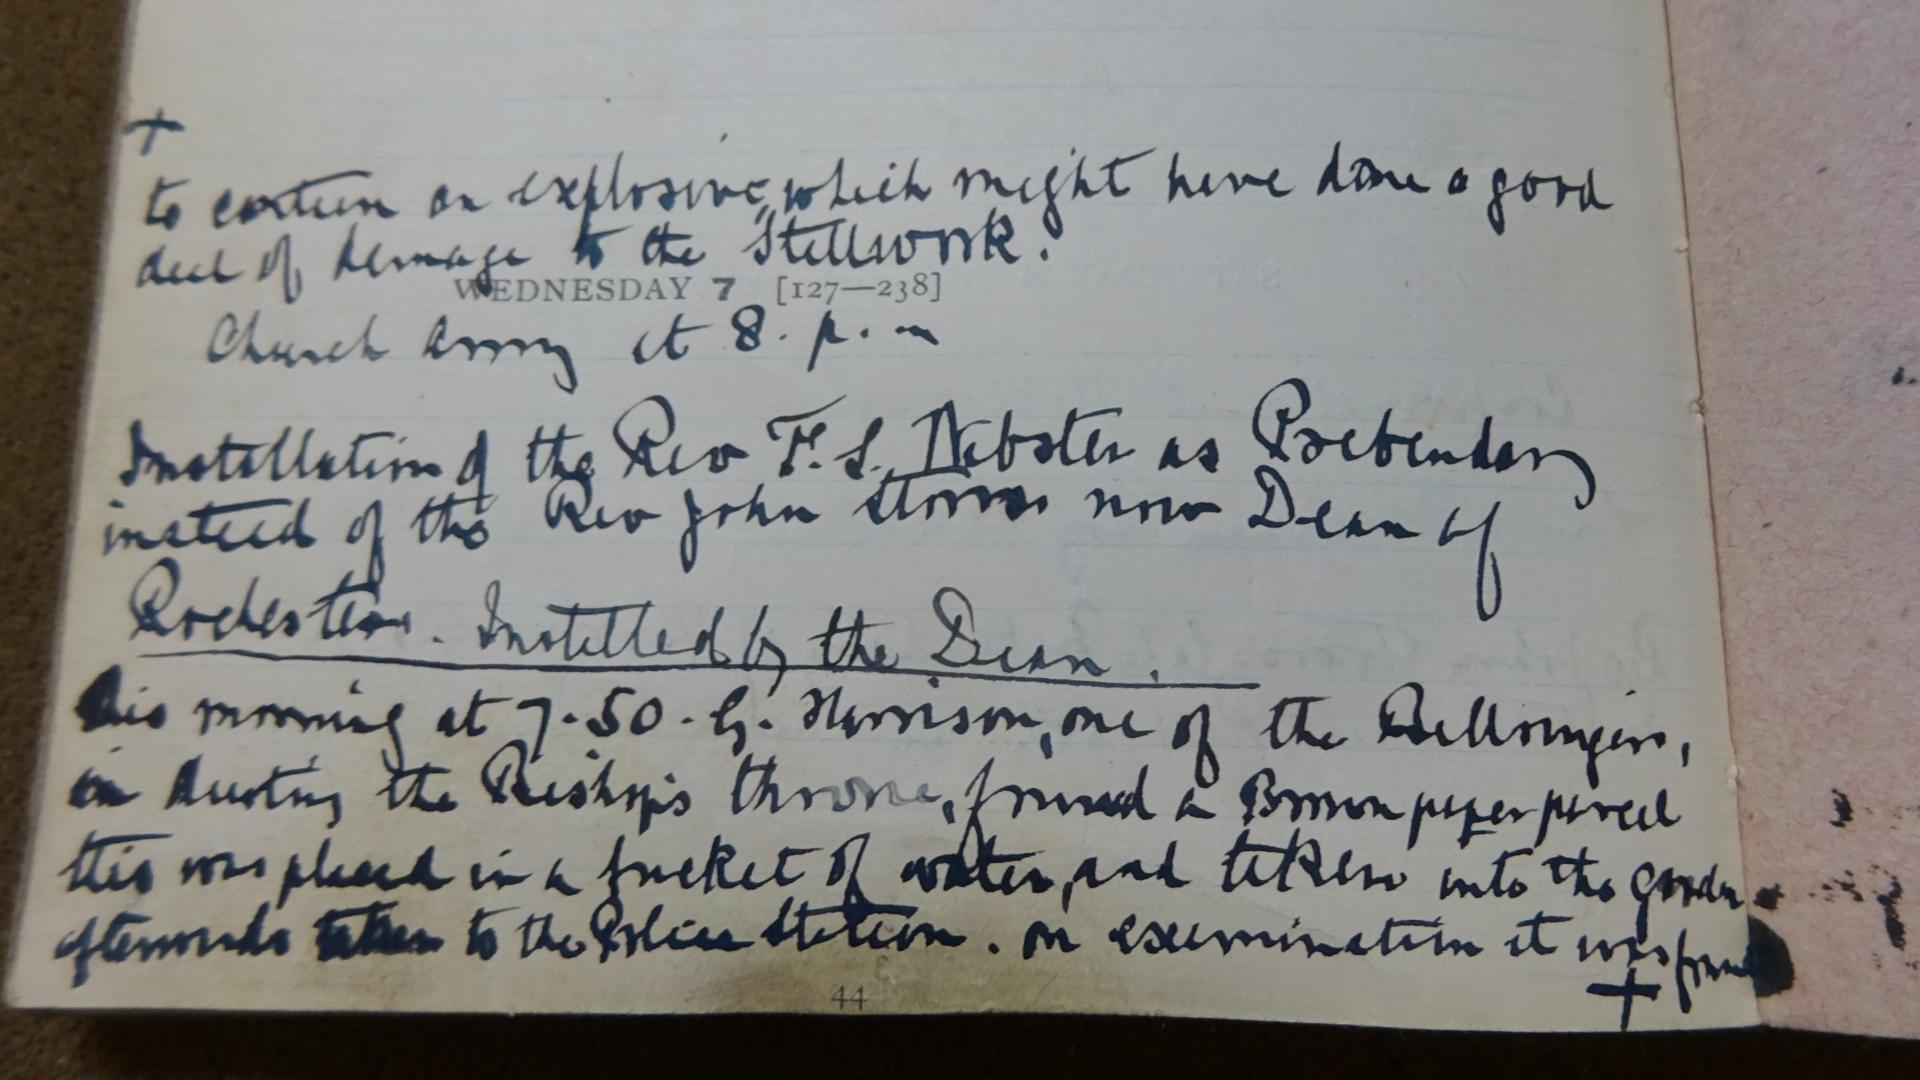 +
to contain an explosive, which might have done a good
deal of damage to the Stallwork.
WEDNESDAY 7 [127—238]
Church Army at 8. p. m
Installation of the Rev F. S. Webster as Prebendary
instead of the Rev John Storrs now Dean of
Rochester. Installed by the Dean.
this morning at 7.50. G. Harrison, one of the Bellringers,
in dusting the Bishops throne, found a Brown paper parcel
this was placed in a bucket of water, and taken into the garden
afterwards taken to the Police Station. on examination it was found
+
44